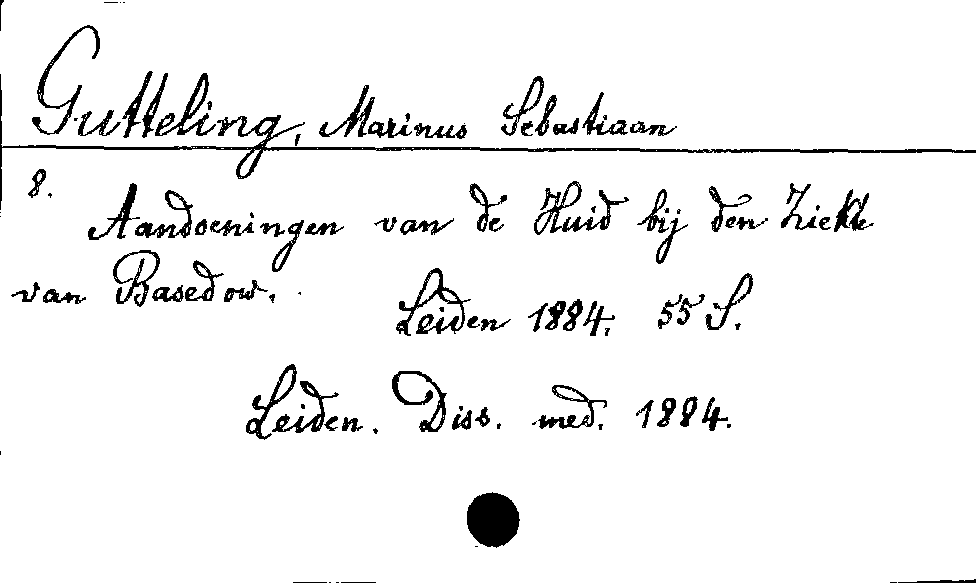 Gutteling, Marinus Sebastiaan
8.
Aandoeningen van de Huid bij den Ziekte
van Basedow.
Leiden 1884. 55 S.
Leiden. Diss. med. 1884.